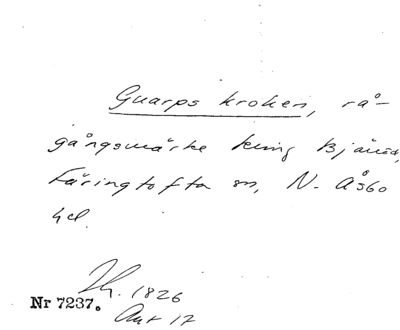 Guarps kroken, rå-
gångsmärke kring Bjärnö,
Färingtofta sn, N. Åsbo
hd.
1826
Nr 7237. Akt 17